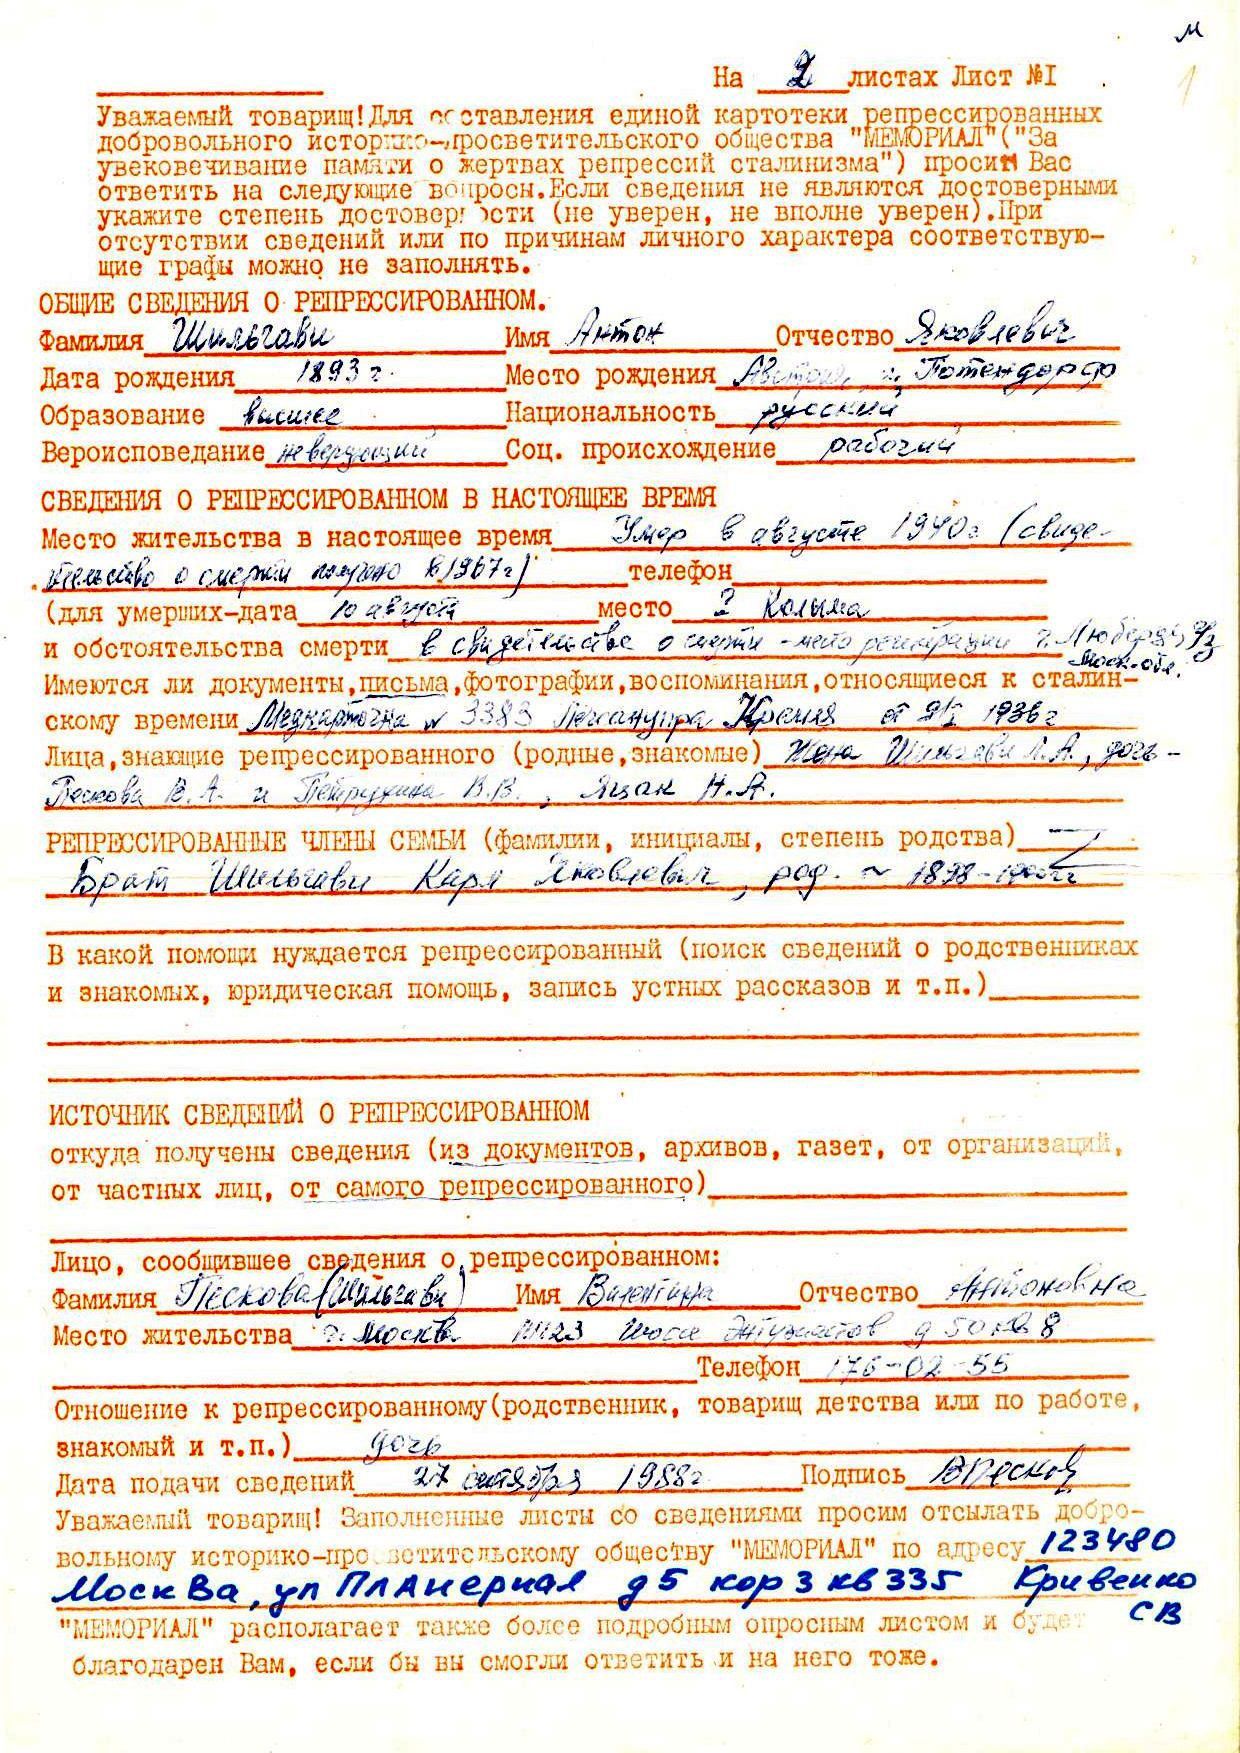 м
1
На 2 листах Лист №I
Уважаемый товарищ!Для составления единой картотеки репрессированных
добровольного историко-просветительского общества "МЕМОРИАЛ"("За
увековечивание памяти о жертвах репрессий сталинизма") просим Вас
ответить на следующие вопросы.Если сведения не являются достоверными
укажите степень достоверности (не уверен, не вполне уверен).При
отсутствии сведений или по причинам личного характера соответствую-
щие графы можно не заполнять.
ОБЩИЕ СВЕДЕНИЯ О РЕПРЕССИРОВАННОМ.
Фамилия Шильгави Имя Антон Отчество Яковлевич
Дата рождения 1893 г. Место рождения Австрия, г. Потендорф
Образование высшее Национальность русский
Вероисповедание неверующий Соц. происхождение рабочий
СВЕДЕНИЯ О РЕПРЕССИРОВАННОМ В НАСТОЯЩЕЕ ВРЕМЯ
Место жительства в настоящее время Умер в августе 1940г (свиде-
тельство о смерти получено в 1967г) телефон
(для умерших-дата 10 августа место ? Колыма
и обстоятельства смерти в свидетельстве о смерти - место регистрации г. Люберцы
Моск. обл.
Имеются ли документы,письма,фотографии,воспоминания,относящиеся к сталин-
скому времени Медкарточка № 3383 Лечсанупра Кремля от 1936г
Лица,знающие репрессированного (родные,знакомые) Жена Шильгави Л.А., дочь -
Пескова В.А. и Петрухина В.В., Яцак Н.А.
РЕПРЕССИРОВАННЫЕ ЧЛЕНЫ СЕМЬИ (фамилии, инициалы, степень родства)
Брат Шильгави Карл Яковлевич, род. ~ 1898-1900гг
В какой помощи нуждается репрессированный (поиск сведений о родственниках
и знакомых, юридическая помощь, запись устных рассказов и т.п.)
ИСТОЧНИК СВЕДЕНИЙ О РЕПРЕССИРОВАННОМ
откуда получены сведения (из документов, архивов, газет, от организаций,
от частных лиц, от самого репрессированного)
Лицо, сообщившее сведения о репрессированном:
Фамилия Пескова (Шильгави) Имя Валентина Отчество Антоновна
Место жительства г. Москва 111123 Шоссе Энтузиастов д 50 кв 8
Телефон 176-02-55
Отношение к репрессированному(родственник, товарищ детства или по работе,
знакомый и т.п.) дочь
Дата подачи сведений 27 сентября 1988г Подпись ВПесков
Уважаемый товарищ! Заполненные листы со сведениями просим отсылать добро-
вольному историко-просветительскому обществу "МЕМОРИАЛ" по адресу 123480
Москва, ул Планерная д5 кор 3 кв 335 Кривенко
СВ
"МЕМОРИАЛ" располагает также более подробным опросным листом и будет
благодарен Вам, если бы вы смогли ответить и на него тоже.